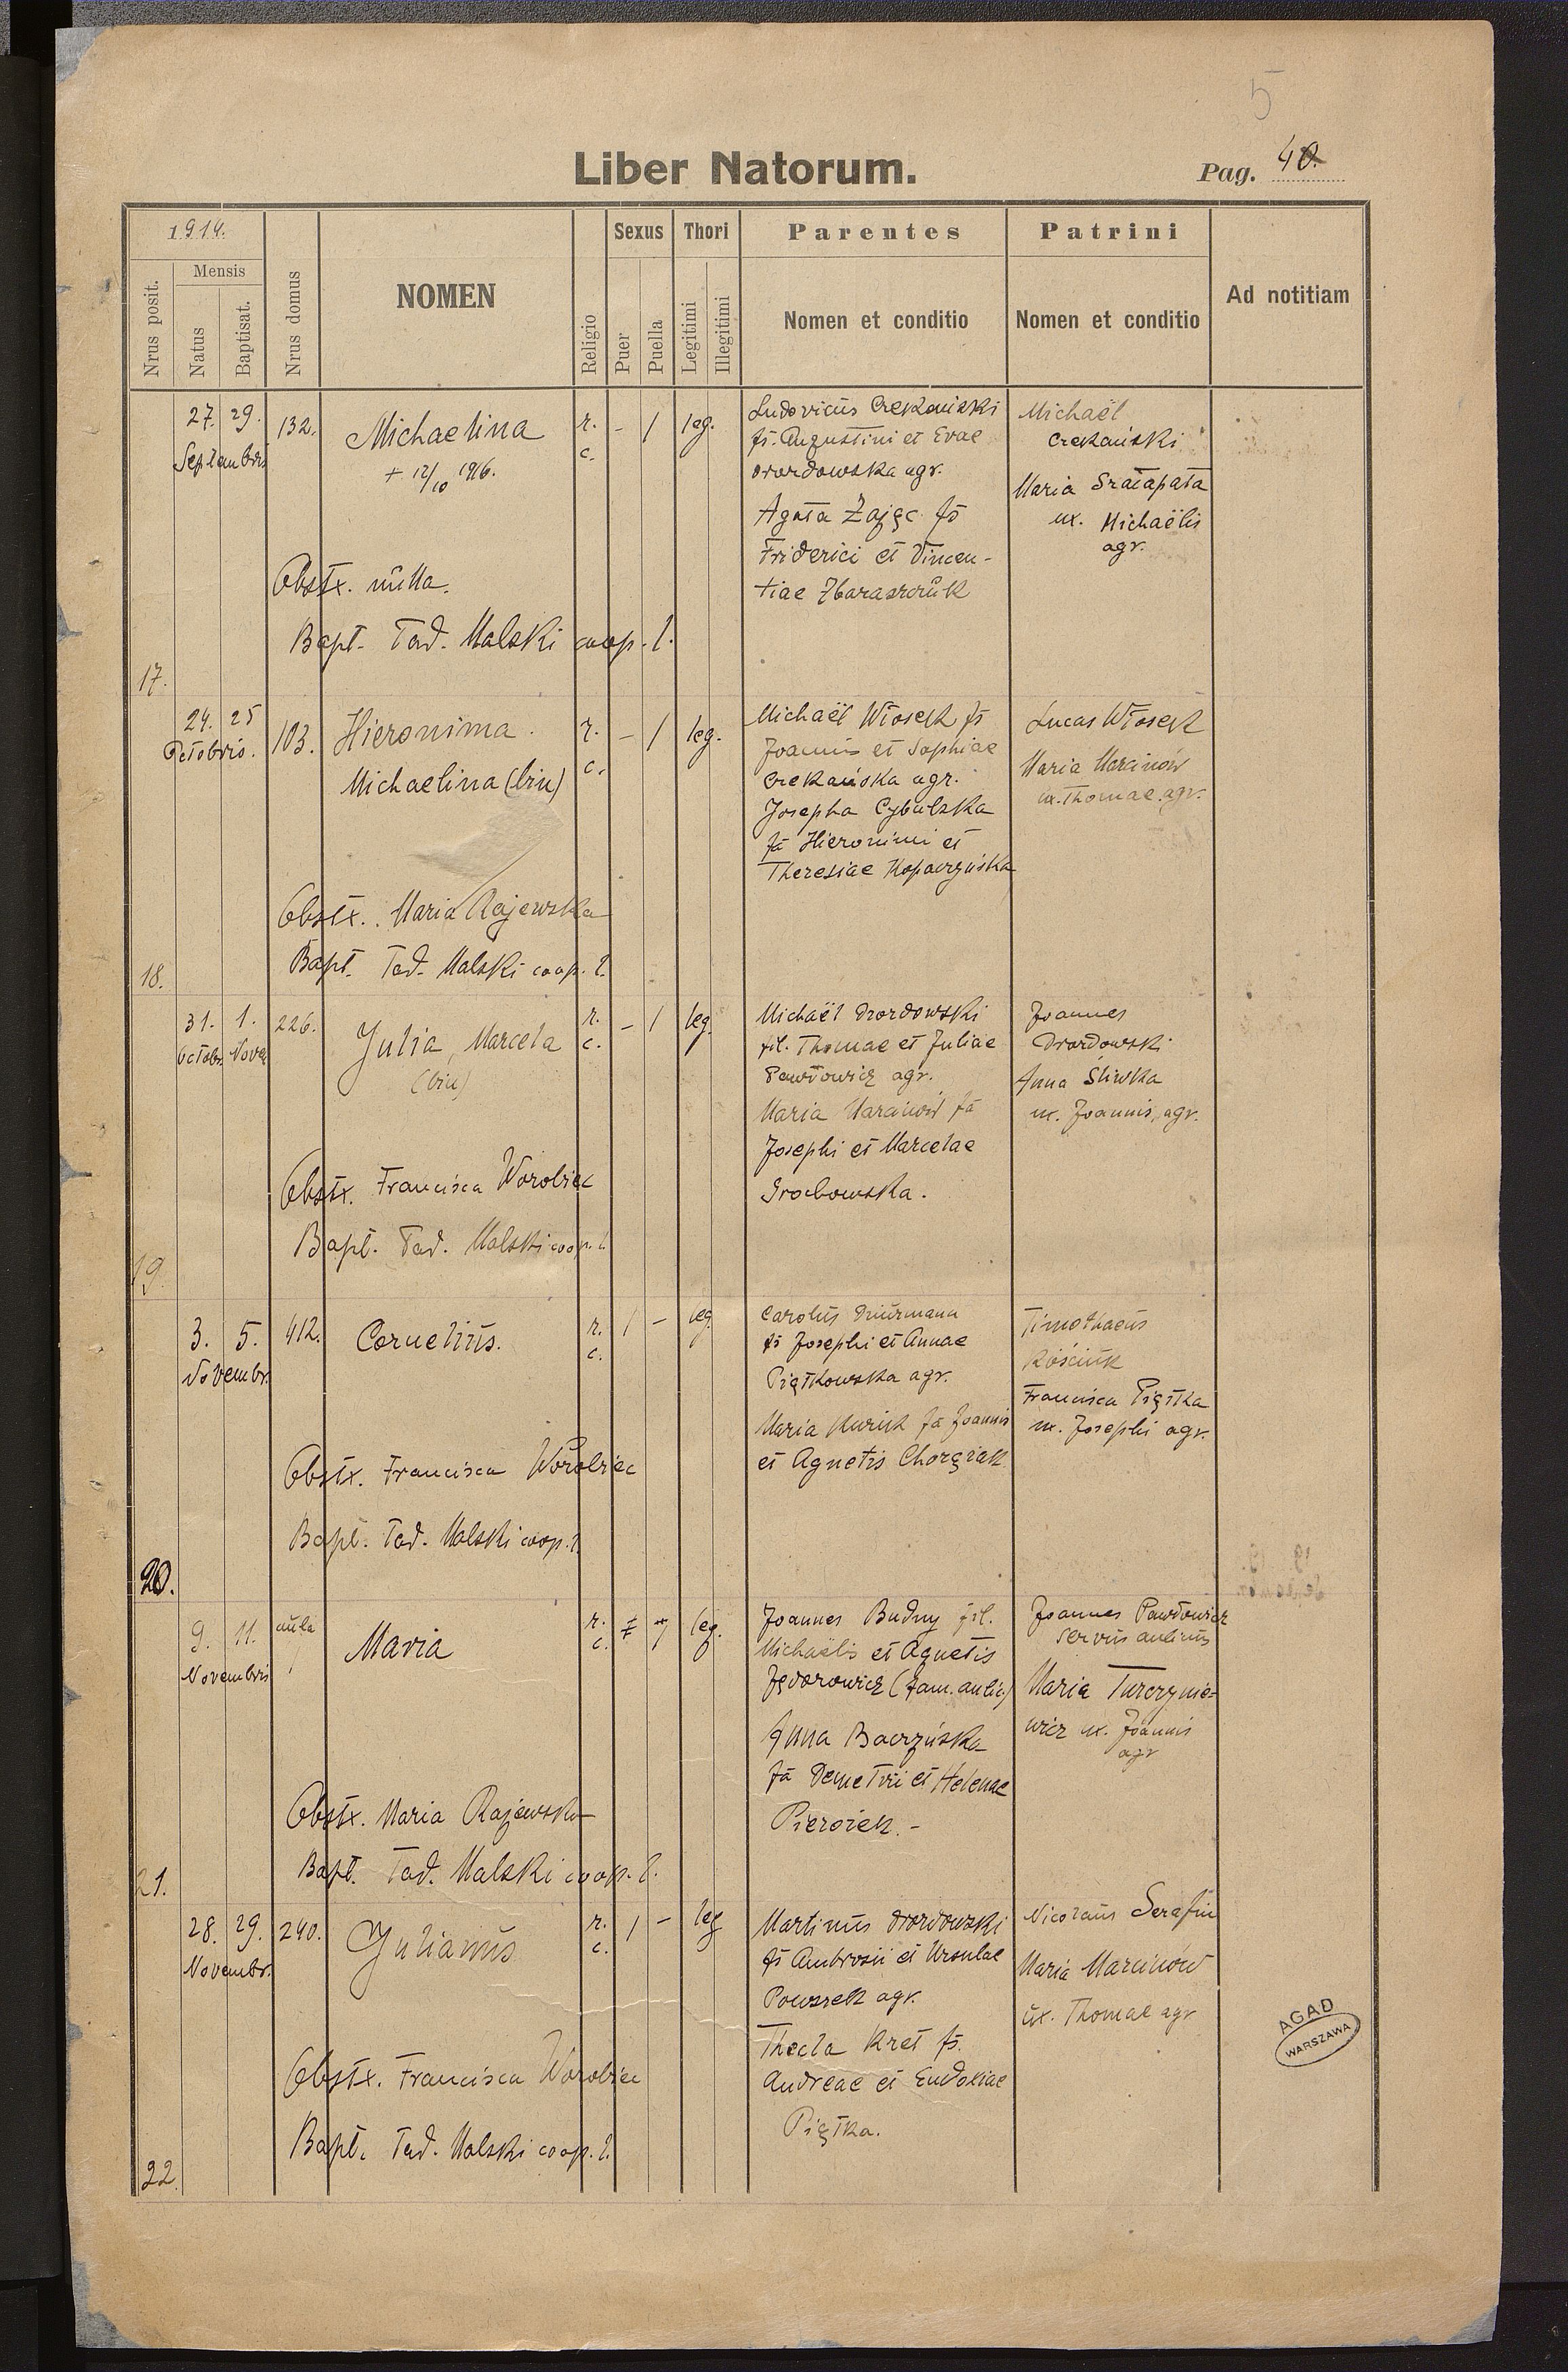 5
Liber Natorum.
Pag. 40.
1914.
Nrus posit.
Mensis
Natus
Baptisat.
Nrus domus
NOMEN
Religio
Sexus
Puer
Puella
Thori
Legitimi
Illegitimi
Parentes
Nomen et conditio
Patrini
Nomen et conditio
Ad notitiam
17.
27. 29.
Septembris
132.
Michaelina
+ 12/10 1916.
r.
c.
- 1 leg.
Ludovicus Czekański
fs. Augustini et Evae
Drozdowska agr.
Agata Zając fs
Friderici et Vincen-
tiae Zbaraszczuk
Michaël
Czekański
Maria Szałapata
ux. Michaëlis
agr.
Obstx. nulla.
Bapt. Tad. Malski coop. l.
18.
24. 25
Octobris.
103.
Hieronima
Michaelina (bin)
r.
c.
- 1 leg.
Michaël Włosek fs
Joannis et Sophiae
Czekańska agr.
Josepha Cybulska
fa Hieronimi et
Theresiae Kopaczyńska
Lucas Włosek
Maria Marcinów
ux. Thomae agr.
Obstx. Maria Rajewska
Bapt. Tad. Malski coop. l.
19.
31. 1.
Octobr. Nove
226.
Julia, Marcela
(bin)
r.
c.
- 1 leg.
Michaël Drozdowski
fil. Thomae et Juliae
Pawłowicz agr.
Maria Marcinów fa
Josephi et Marcelae
Grochowska.
Joannes
Drozdowski
Anna Śliwka
ux. Joannis, agr.
Obstx. Francisca Worobiec
Bapt. Tad. Malski coop. l.
20.
3. 5.
Novembr.
412.
Cornelius.
r.
c.
1 - leg.
Carolus
fs Josephi et Annae
Piątkowska agr.
Maria Kurick fa Joannis
et Agnetis
Timothaeus
Kościuk
Francisca Piątka
ux. Josephi agr.
Obstx. Francisca Worobiec
Bapt. Tad. Malski coop. l.
21.
9. 11.
Novembris
Maria
r.
c.
leg.
Joannes Budny fil.
Michaëlis et Agnetis
Fedorowicz (fam. aulic.)
Anna Baczyńska
fa Demetrii et Helenae
Pierożek. -
Joannes Pawłowicz
servus aulicus
Maria Turczynie-
wicz ux. Joannis
agr
Obstx. Maria Rajewska
Bapt. Tad. Malski coop. l.
22.
28. 29.
Novembr.
240.
Julianus
r.
c.
1 - leg
Martinus Drozdowski
fs Ambrosii et Ursulae
Powszek agr.
Thecla Kret fs.
Andreae et Eudoxiae
Piątka.
Nicolaus Serafin
Maria Marcinów
ux. Thomae agr
Obstx. Francisca Worobiec
Bapt. Tad. Malski coop. l.
AGAD
WARSZAWA